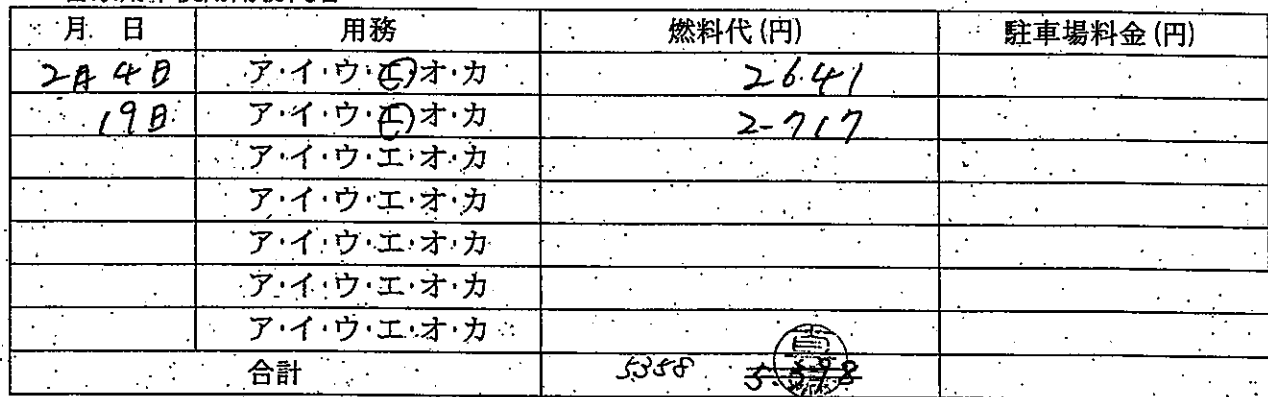 月 日 用務 燃料代(円) 駐車場料金(円)
2月4日 ア・イ・ウ・エ・オ・カ 2641
19日 ア・イ・ウ・エ・オ・カ 2717
ア・イ・ウ・エ・オ・カ
ア・イ・ウ・エ・オ・カ
ア・イ・ウ・エ・オ・カ
ア・イ・ウ・エ・オ・カ
ア・イ・ウ・エ・オ・カ
合計 5358